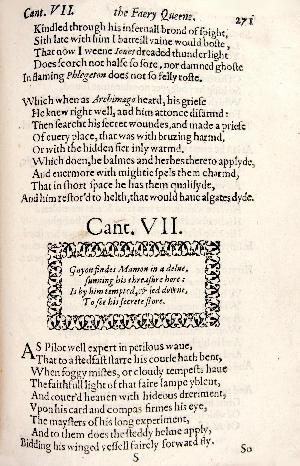 Cant. VII. the Faery Queene. 271
Kindled through his infernall brond of spight,
Sith late with him I batteill vaine would boste,
That now I weene Ioues dreaded thunder light
Does scorch not halfe so sore, nor damned ghoste
In flaming Phlegeton does not so felly roste.
Which when as Archimago heard, his griefe
He knew right well, and him attonce disarmd:
Then searcht his secret woundes, and made a priefe
Of euery place, that was with bruzing harmd,
Or with the hidden fier inly warmd.
Which doen, he balmes and herbes thereto applyde,
And euermore with mightie spels them charmd,
That in short space he has them qualifyde,
And him restor'd to helth, that would haue algates dyde.
Cant. VII.
Guyon findes Mamon in a delue,
sunning his threasure hore:
Is by him tempted, & led downe,
To see his secrete store.
AS Pilot well expert in perilous waue,
That to a stedfast starre his course hath bent,
When foggy mistes, or cloudy tempests haue
The faithfull light of that faire lampe yblent,
And couer'd heauen with hideous dreriment,
Vpon his card and compas firmes his eye,
The maysters of his long experiment,
And to them does the steddy helme apply,
Bidding his winged vessell fairely forward fly.
S So